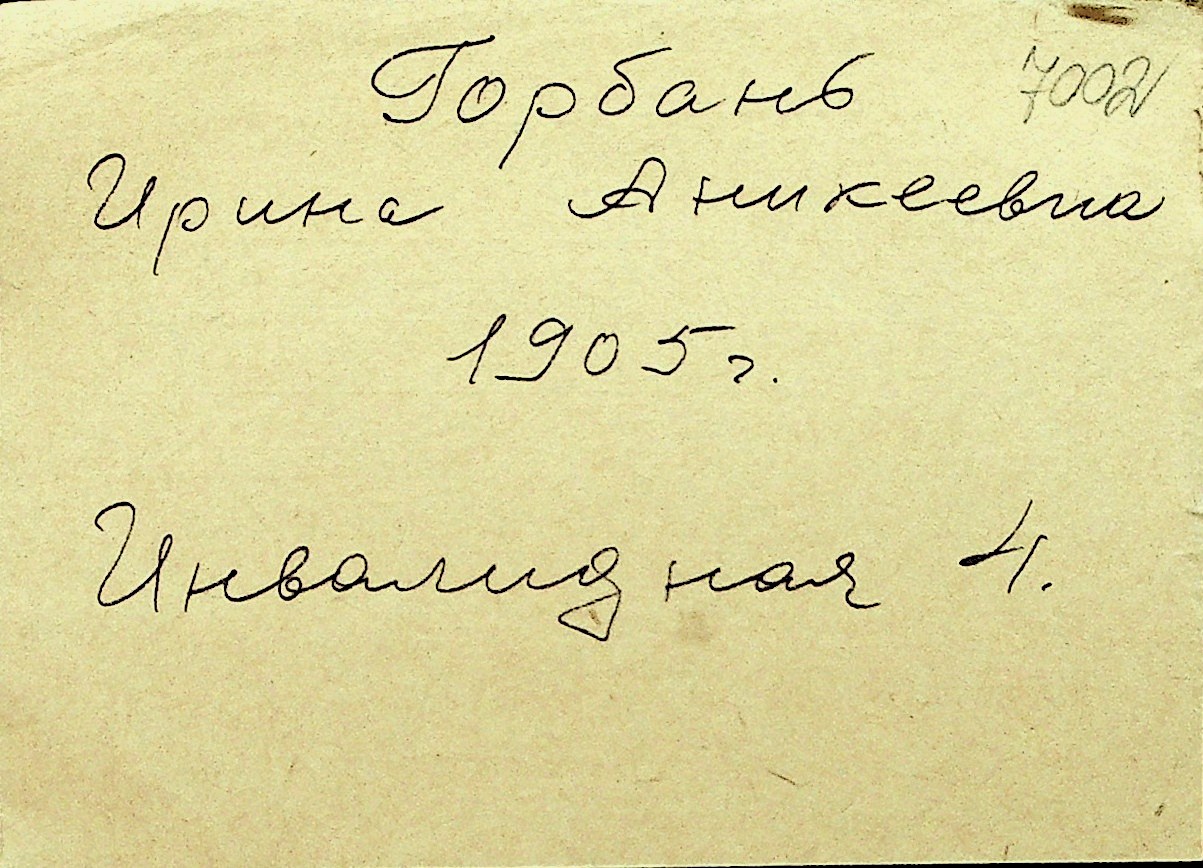 Горбань 7002
Ирина Аникеевна
1905г.
Инвалидная 4.